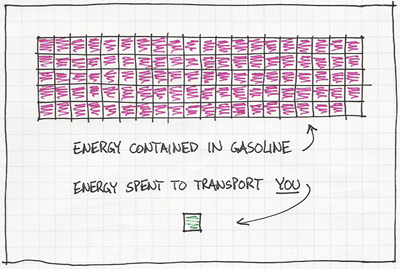 ENERGY CONTAINED IN GASOLINE
ENERGY SPENT TO TRANSPORT YOU